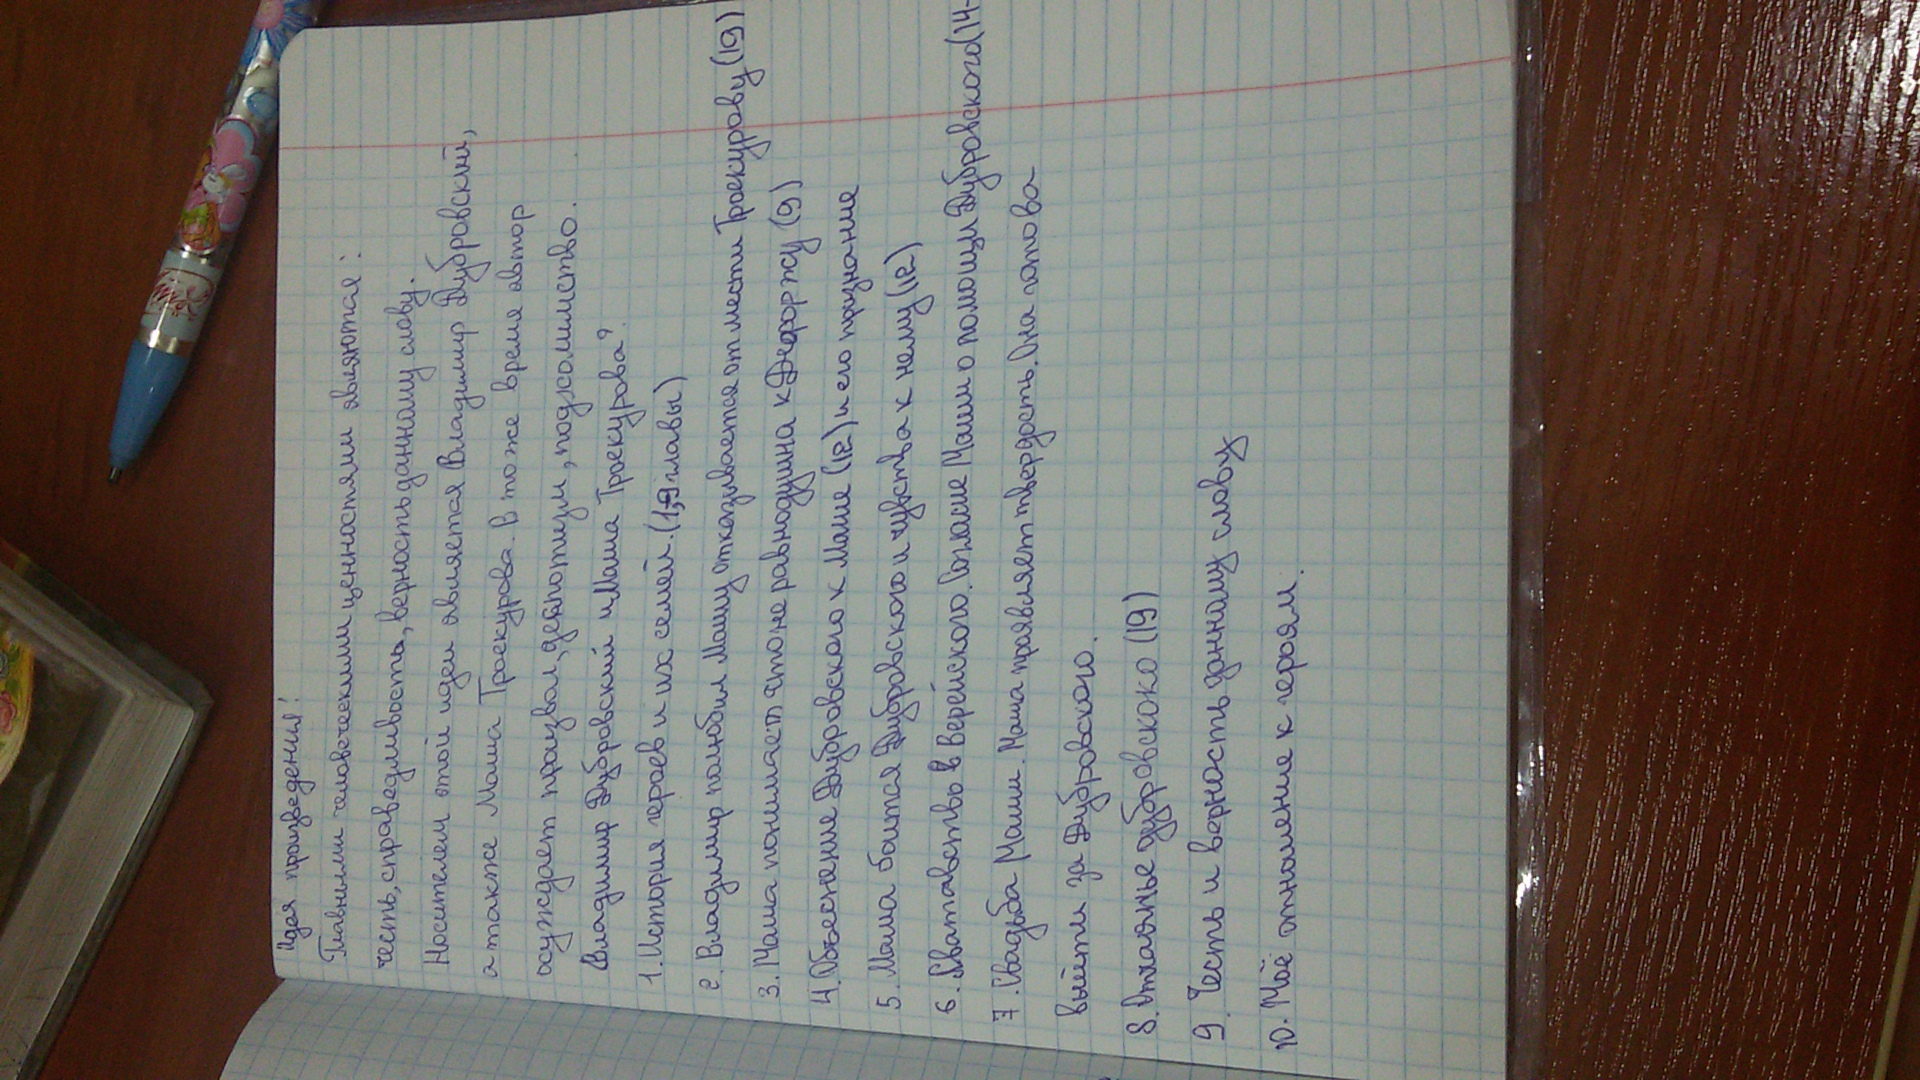 Идея произведения:
Главными человеческими ценностями являются:
честь, справедливость, верность данному слову.
Носителем этой идеи является Владимир Дубровский,
а также Маша Троекурова. В то же время автор
осуждает произвол, деспотизм, подхолимство.
Владимир Дубровский и Маша Троекурова?
1. История героев и их семей. (1,9 главы)
2. Владимир полюбил Машу отказывается от мести Троекурову (19)
3. Маша понимает что не равнодушна к Дефоржу (9)
4. Объеснение Дубровского к Маше (12) и его признание
5. Маша боится Дубровского и чувства к нему (12)
6. Сватавство в Верейского. Согласие Маши о помощи Дубровского (14-
7. Свадьба Маши. Маша проявляет твердость. Она готова
выйти за Дубровского.
8. дубровскоко (19)
9. Честь и верность данному слову
10. Моё отношение к героям.